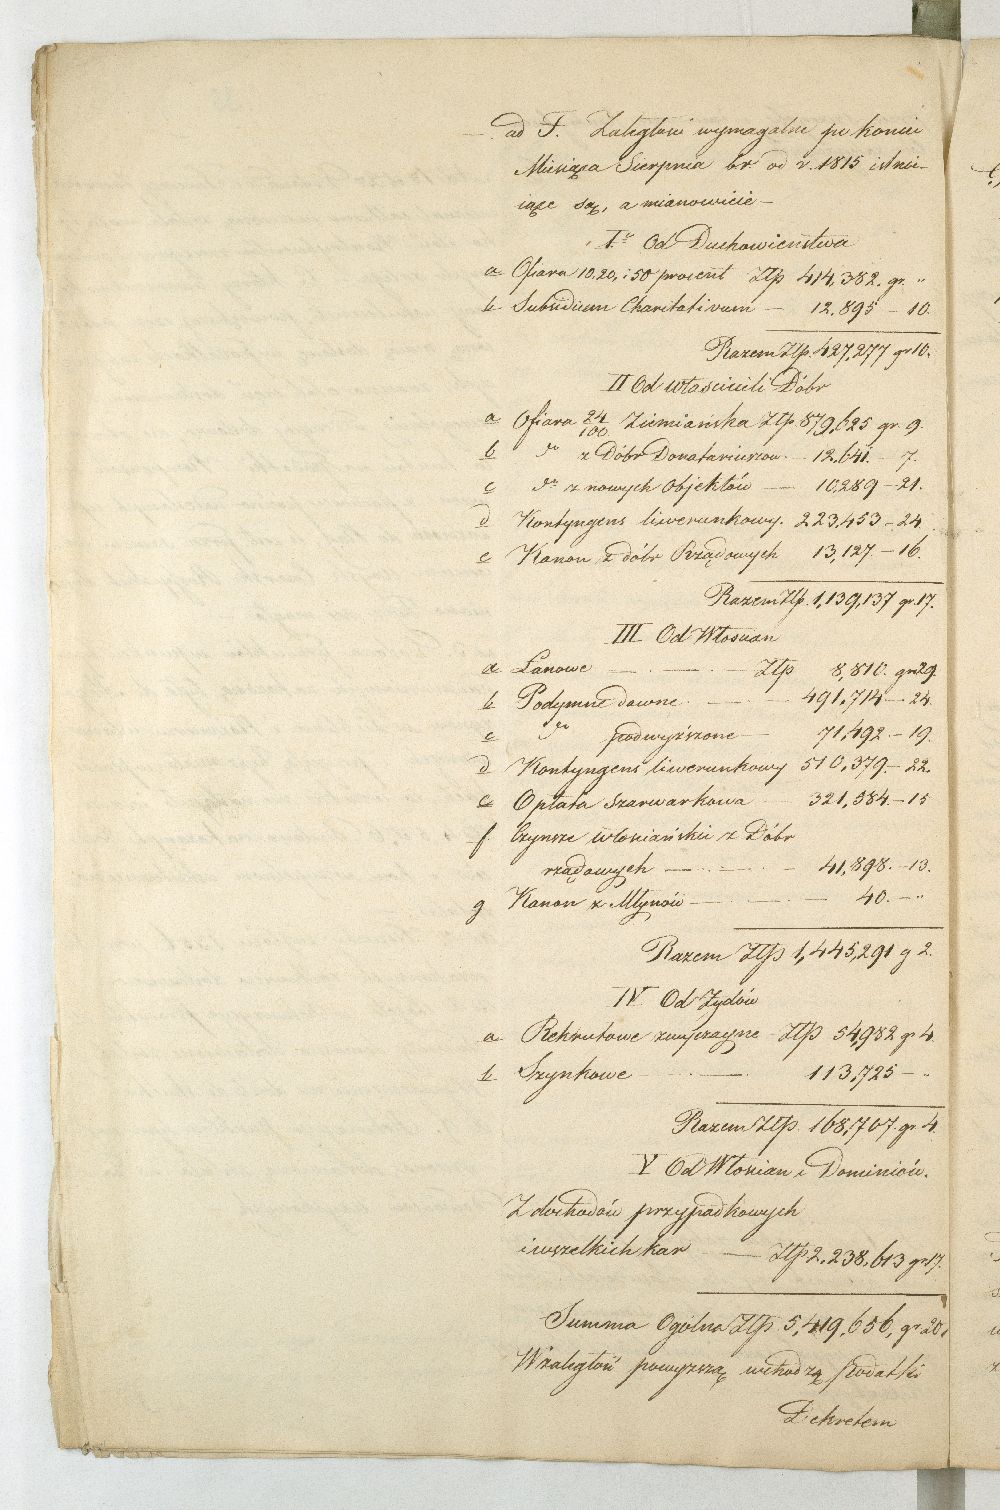 ad F. Zaległości wymagalne po koniec
Miesiąca Sierpnia br od r. 1815 istnie-
iące są, a mianowicie –
I° Od Duchowieństwa
a Ofiara 10, 20, i 50 procent Złp 414,382. gr. "
b Subsidium Charitativum – 12,895 – 10.
Razem Złp. 427,277 gr 10.
II Od właścicieli Dóbr
a Ofiara 24/100 Ziemiańska Złp 879,625 gr. 9.
b do z Dóbr Donatariuszow. – 12,641. – 7.
c do z nowych Objektów — 10,289 – 21.
d Kontyngens liwerunkowy. 223,453 – 24.
e Kanon z dóbr Rządowych 13,127 – 16.
Razem Złp. 1,139,137 gr. 17.
III Od Włoscian
a Łanowe — . — . — Złp 8,810. gr 29.
b Podymne dawne. — . — 491,714 – 24.
c do podwyższone — 71,492. – 19.
d Kontyngens liwerunkowy 510,379. – 22.
e Opłata Szarwarkowa 321,584. – 15
f Czynsze włosciańskie z Dóbr
rządowych — . — . — 41,898. – 13.
g Kanon z Młynów — . — . — 40. – "
Razem Złp 1,445,291 g 2.
IV Od Żydów
a Rekrutowe zwyczayne – Złp 54,982 gr 4.
b Szynkowe — . — 113,725 – "
Razem Złp. 168,707. gr. 4.
V Od Włoscian i Dominiów.
Z dochodów przypadkowych
i wszelkich kar — Złp 2,238,613 gr 17.
Summa Ogólna Złp. 5,419,656, gr 20.
W zaległość powyższą wchodzą podatki
Dekretem